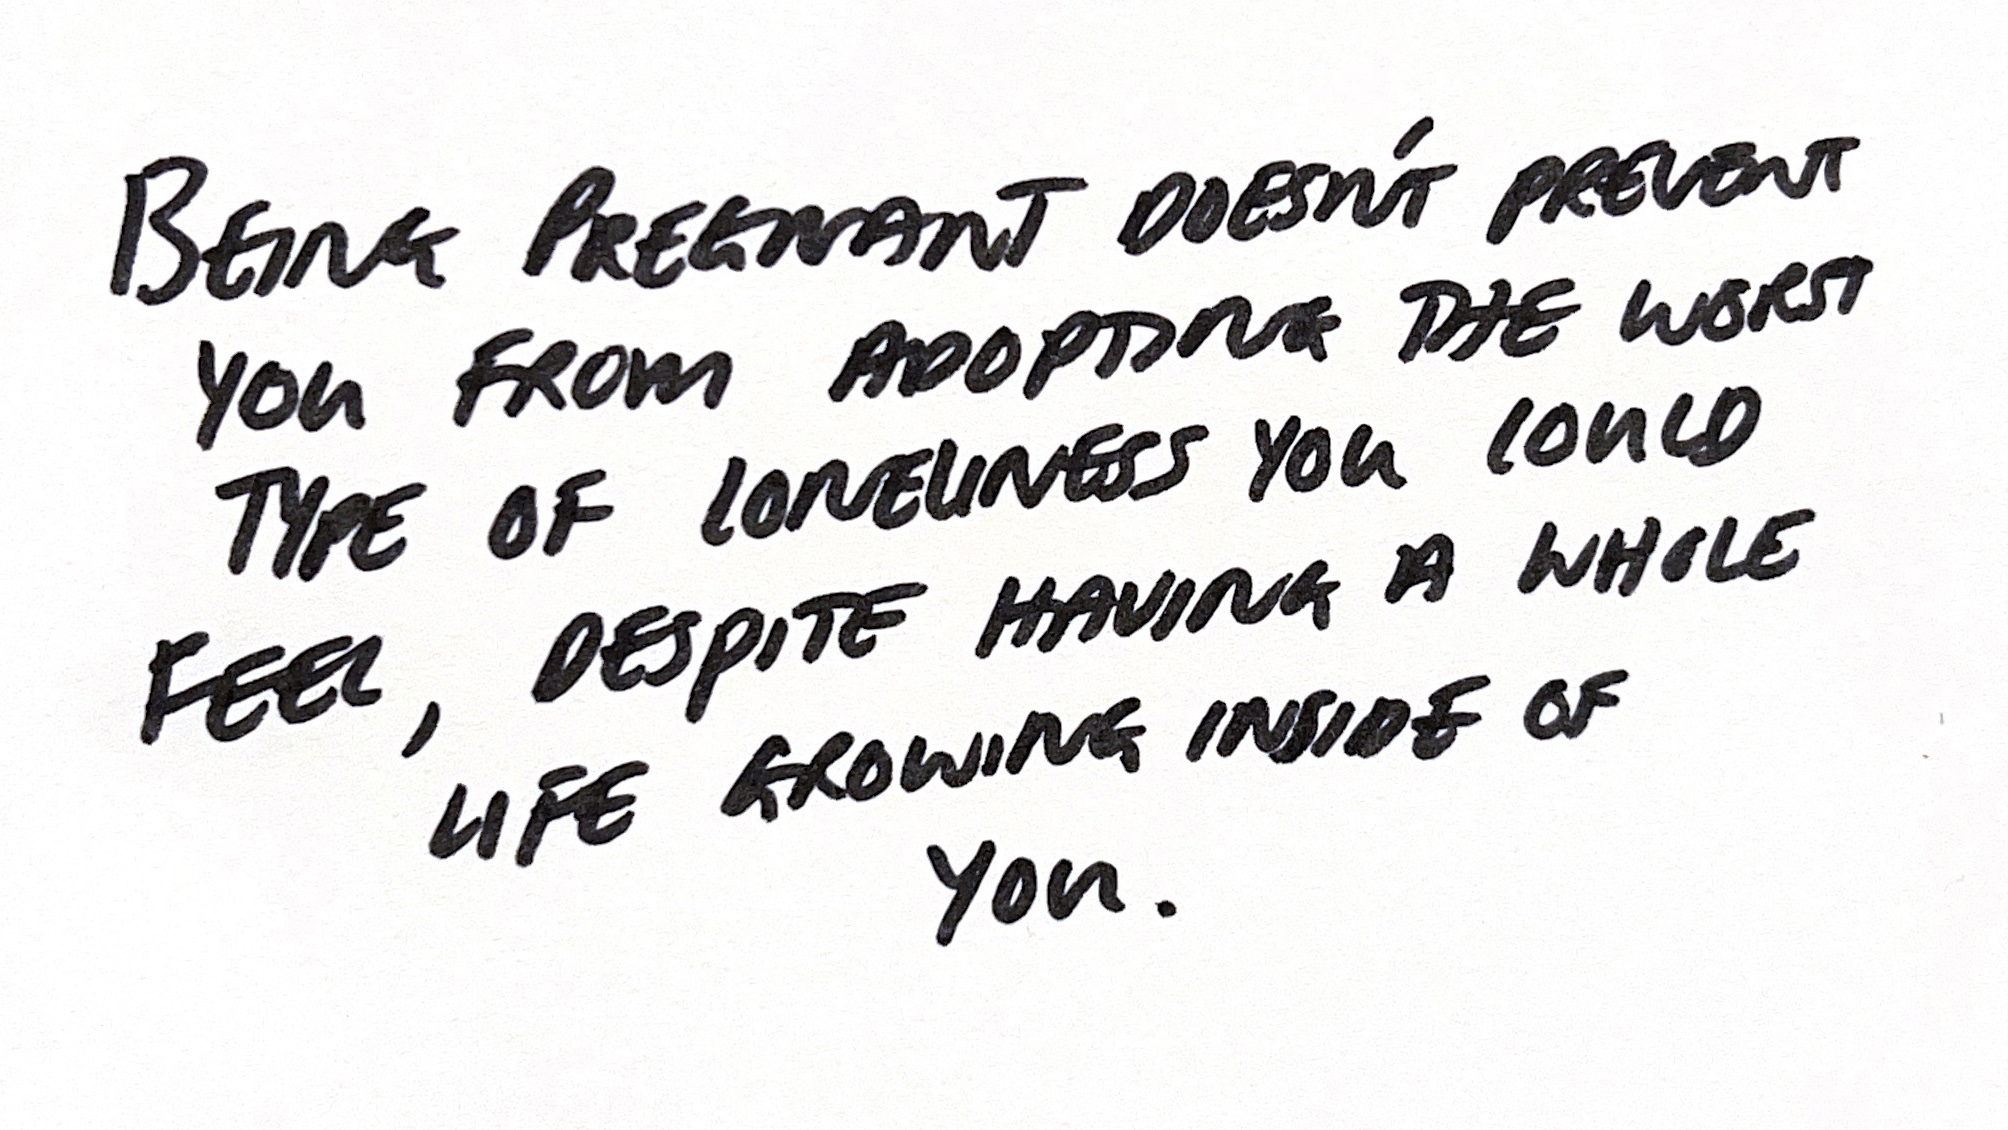 BEING PREGNANT DOESN'T PREVENT
YOU FROM ADOPTING THE WORST
TYPE OF LONELINESS YOU COULD
FEEL, DESPITE HAVING A WHOLE
LIFE GROWING INSIDE OF
YOU.